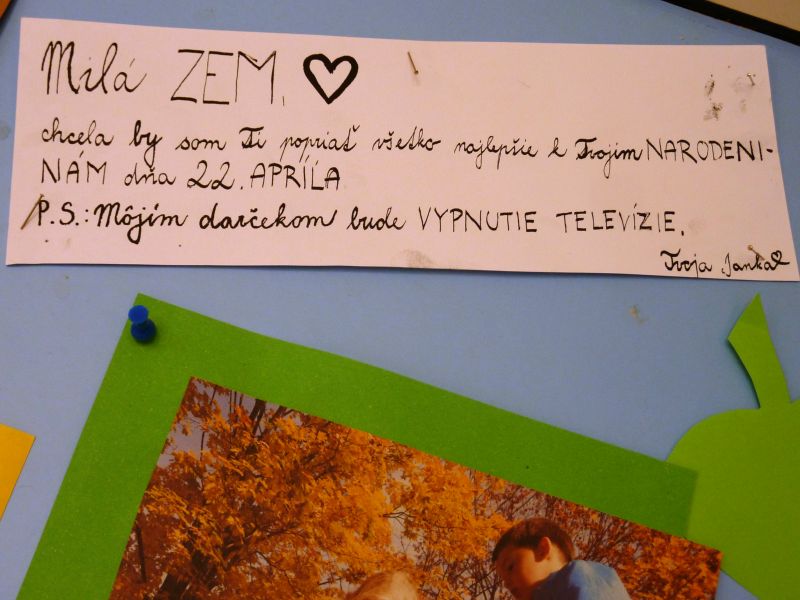 Milá ZEM, ♡
chcela by som Ti popriať všetko najlepšie k Tvojim NARODENI-
NÁM dňa 22. APRÍĹA
P.S.: Mójím darčekom bude VYPNUTIE TELEVÍZIE.
Tvoja Janka♡